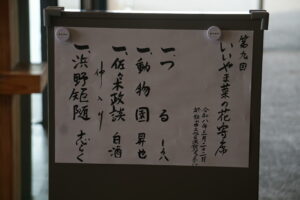 第九回
いいやま菜の花寄席
令和八年三月二十一日
一、つる
一、動物園 昇也
一、佐々木政談 白酒
仲入り
一、浜野矩随